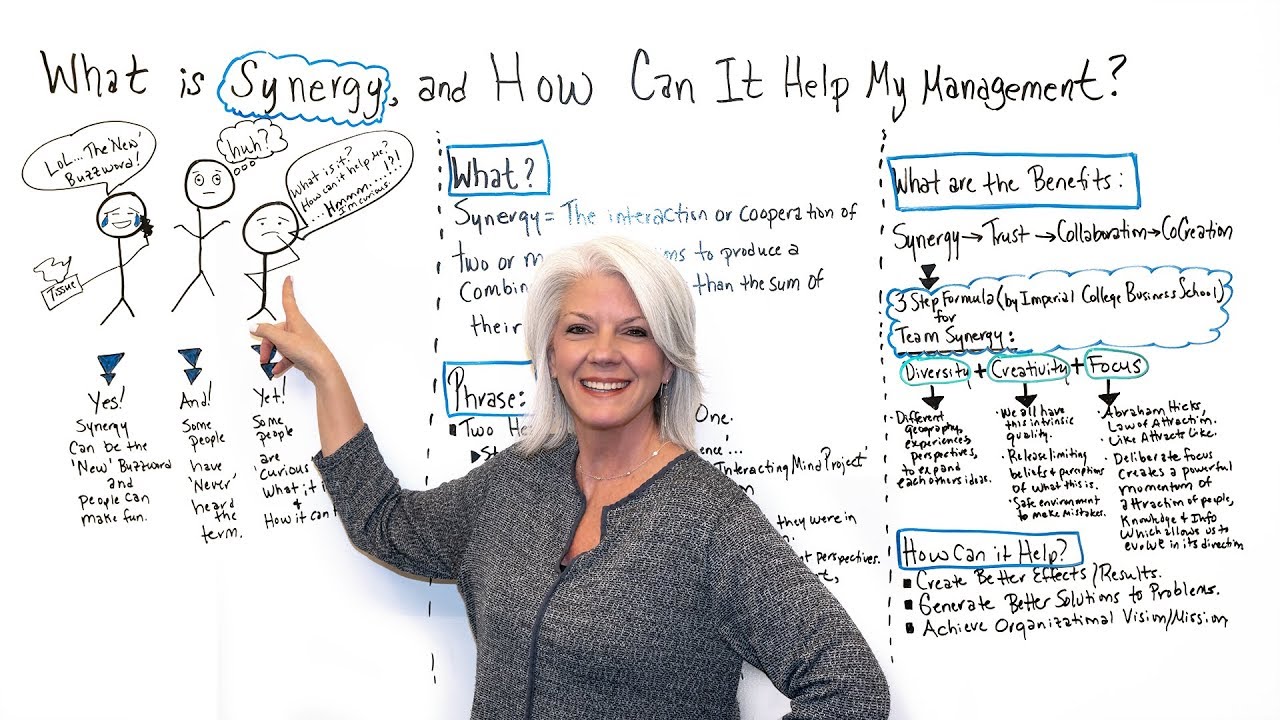 What is Synergy, and How Can It Help My Management?
LoL... The 'New'
Buzzword!
huh?
What is it?
How can it help Me?
... Hmmm....!?!
I'm curious.
Tissue
Yes!
Synergy
Can be the
'New' Buzzword
and
people can
make fun.
And!
Some
people
have
'Never'
heard
the
term.
Yet!
Some
people
are
'curious
What it
&
How it can
What?
Synergy = The interaction or cooperation of
two or to produce a
than the sum of
their
Phrase:
Two One.
Interacting Mind Project'
they were in
perspectives.
What are the Benefits:
Synergy → Trust → Collaboration → CoCreation
3 Step Formula (by Imperial College Business School)
for
Team Synergy:
Diversity + Creativity + Focus
• Different
geography,
experiences,
perspectives,
to expand
each others ideas.
• We all have
this intrinsic
quality.
• Release limiting
beliefs & perceptions
of what this is.
• Safe environment
to make mistakes.
• Abraham Hicks,
Law of Attraction.
• Like Attracts Like.
• Deliberate focus
creates a powerful
momentum of
attraction of people,
Knowledge & Info
which allows us to
evolve in its direction
How Can it Help?
■ Create Better Effects/Results.
■ Generate Better Solutions to Problems.
■ Achieve Organizational Vision/Mission